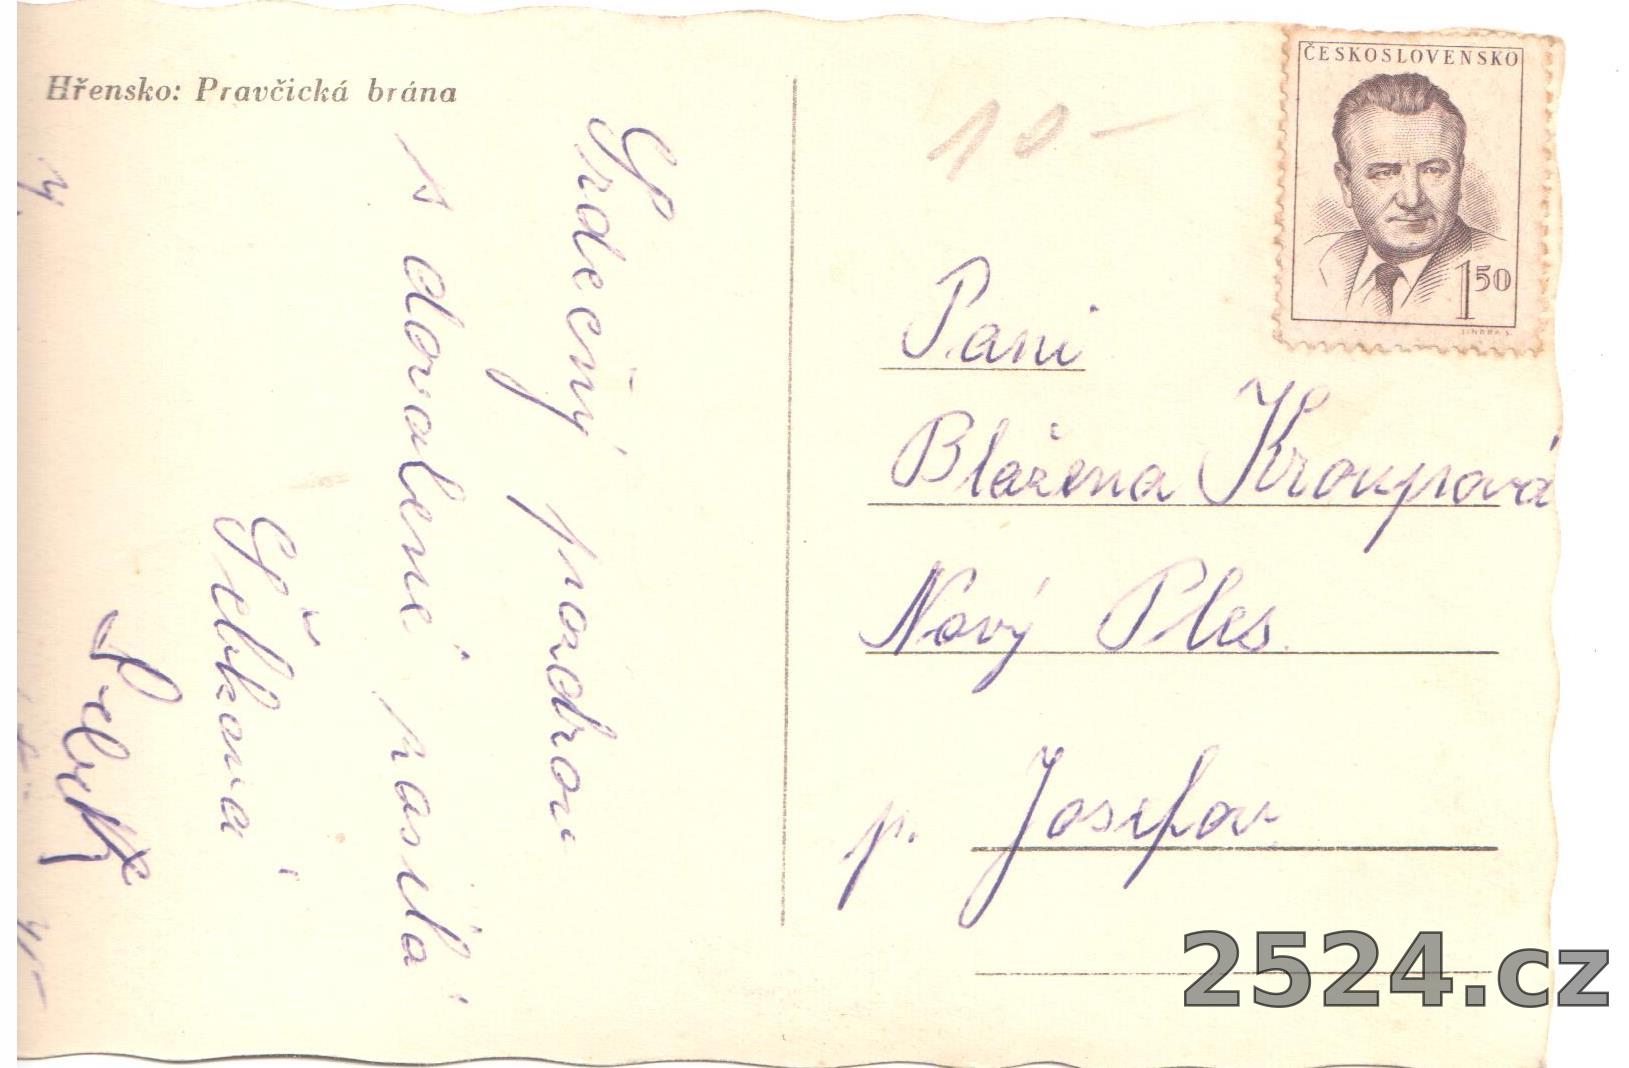 Hřensko: Pravčická brána
Srdečný pozdrav
s dovolené zasílá
10 –
ČESKOSLOVENSKO
1 50
JINDRA S.
Paní
Blažena Kroupová
Nový Ples.
p. Josefov
2524.cz